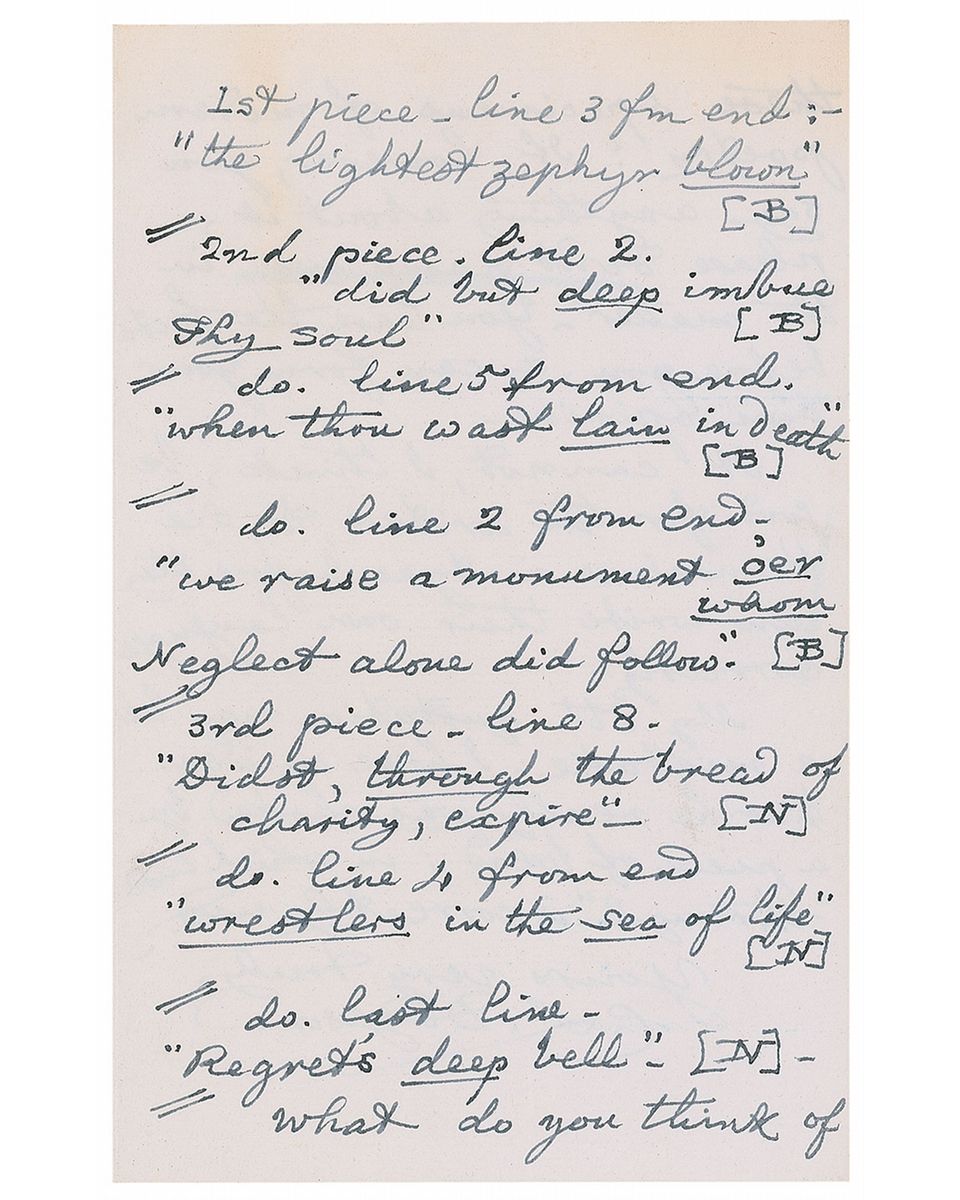 1st piece - line 3 fm end :-
"the lightest zephyr blown"
[B]
// 2nd piece. line 2.
"did but deep imbue
Thy soul" [B]
// do. line 5 from end.
"when thou wast lain in death"
[B]
// do. line 2 from end -
"we raise a monument o'er
whom
Neglect alone did follow". [B]
// 3rd piece - line 8 -
"Didst, through the bread of
charity, expire" - [N]
// do. line 4 from end
"wrestlers in the sea of life"
[N]
// do. last line -
"Regret's deep bell" - [N] -
// what do you think of